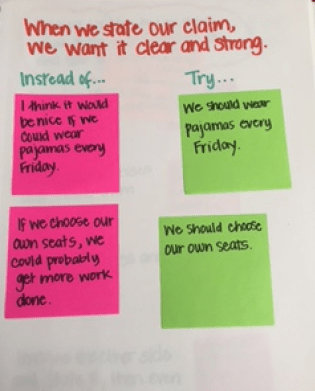 When we state our claim,
we want it clear and strong.
Instead of... Try...
I think it would
be nice if we
could wear
pajamas every
Friday.
We should wear
pajamas every
Friday.
If we choose our
own seats, we
could probably
get more work
done.
We should choose
our own seats.